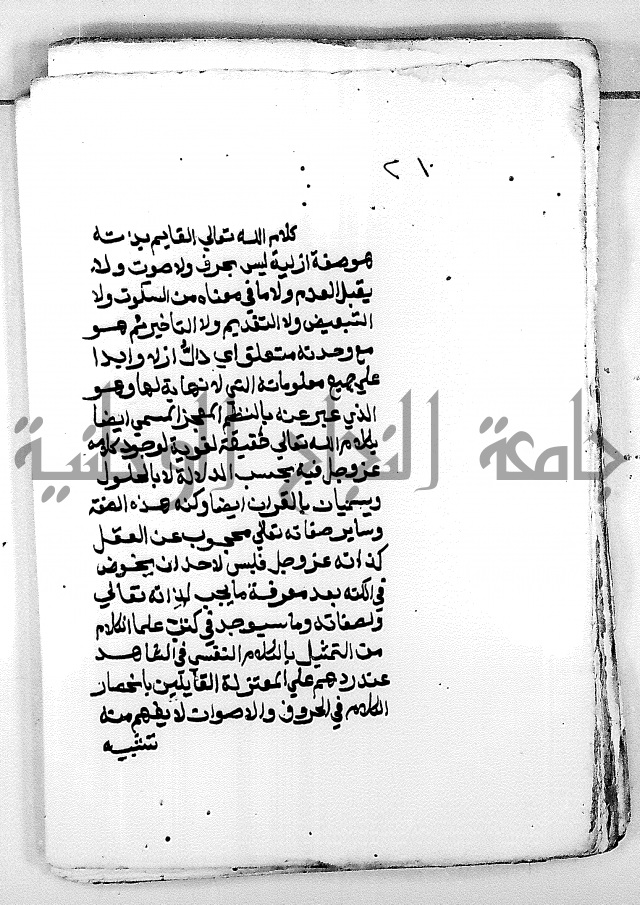 ٢١٠
كلام الله تعالي القايم بذاته
هو صفة ازلية ليس بحرف ولا صوت ولا
يقبل العدم ولا ما في معناه من السكوت ولا
التبعيض ولا التقديم ولا التاخير ثم هو
مع وحدته متعلق اي دال ازلا وابدا
علي جميع معلوماته التي لا نهاية لها وهو
الذي عبر عنه بالنظم المعجز المسمي ايضا
بكلام الله تعالي حقيقة لغوية لوجود كلامه
عز وجل فيه بحسب الدلالة لا بالحلول
ويسميات بالقران ايضا وكنه هذه الصفة
وساير صفاته تعالي محجوب عن العقل
كذاته عز وجل فليس لاحد ان يخوض
في الكنه بعد معرفة ما يجب لذاته تعالي
ولصفاته وما سيوجد في كتب علما الكلام
من التمثيل بالكلام النفسي في الشاهد
عند ردهم علي المعتزلة القايلين بانحصار
الكلام في الحروف والاصوات لا يفهم منه
تشبيه
جامعة النجاح الوطنية